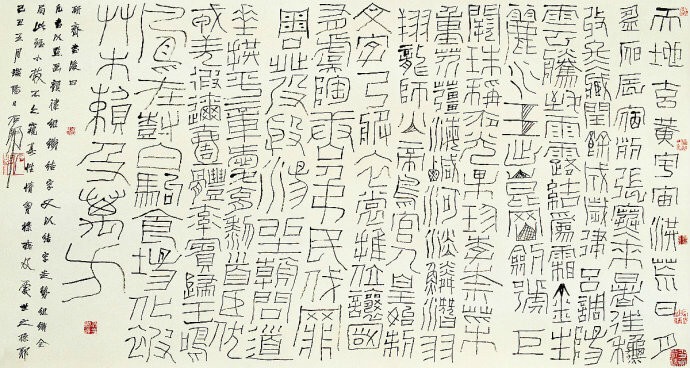 天地玄黃宇宙洪荒日月
盈昃辰宿列張寒來暑往秋
收冬藏閏餘成歲律呂調陽
雲騰致雨露結為霜金生
麗水玉出崑岡劍號巨
闕珠稱夜光果珍李柰菜
重芥薑海鹹河淡鱗潛羽
翔龍師火帝鳥官人皇始制
文字乃服衣裳推位讓國
有虞陶唐弔民伐罪
周發殷湯坐朝問道
垂拱平章愛育黎首臣伏
戎羌遐邇壹體率賓歸王鳴
鳳在樹白駒食場化被
草木賴及萬方
結字又以結字走勢組
局此雖小
五月端陽日